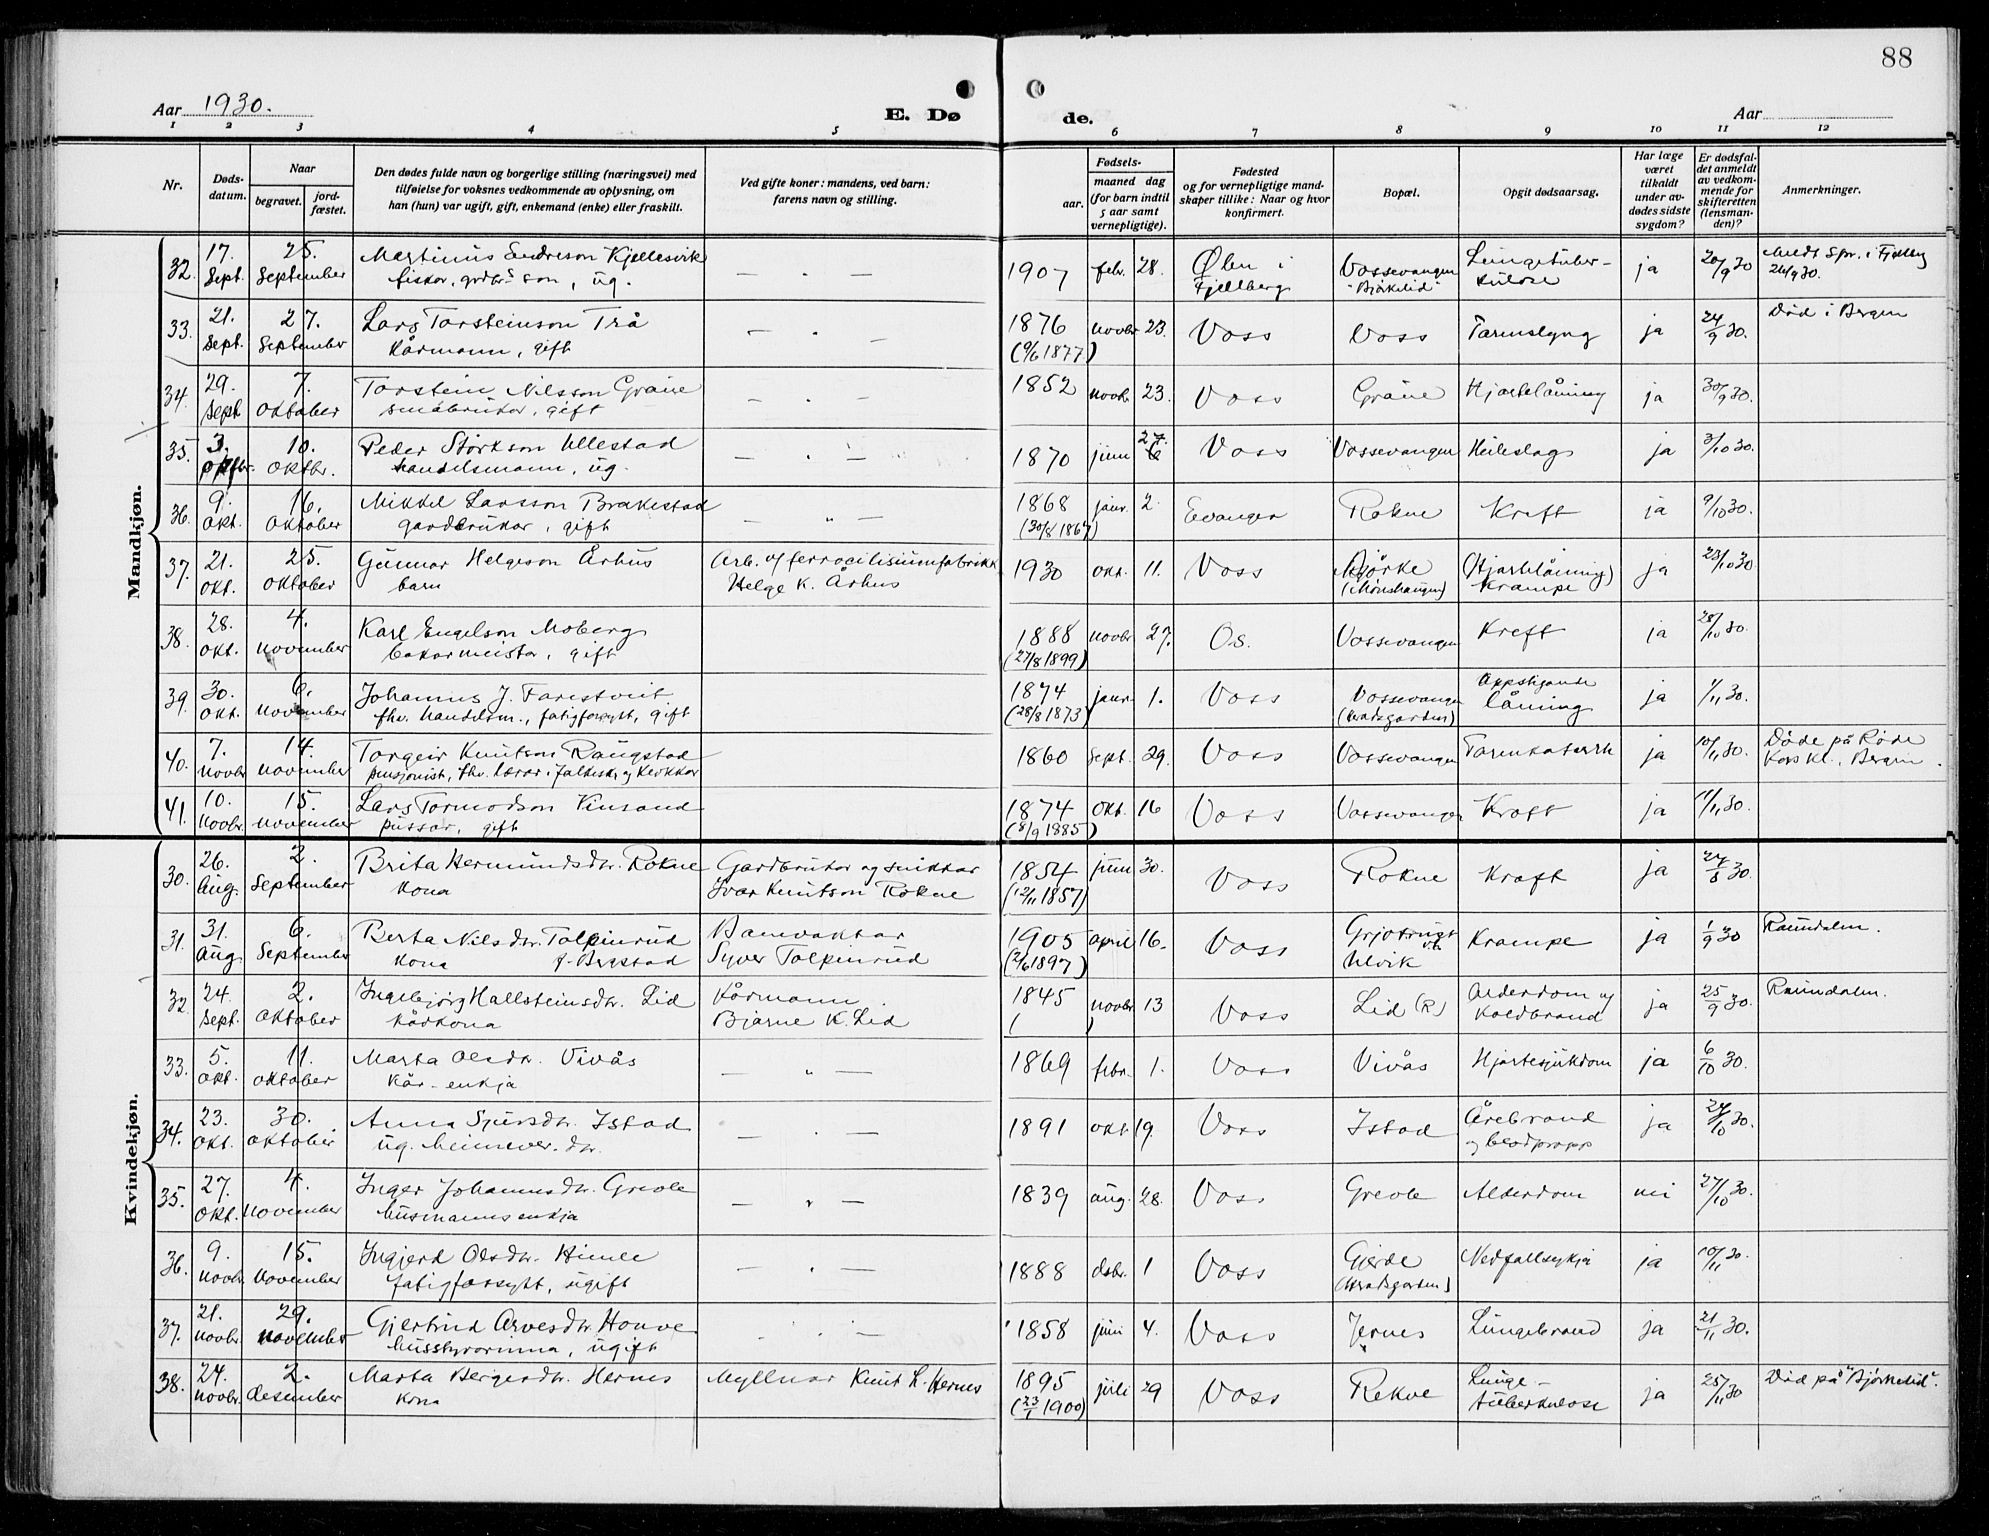 88
Aar 1930.
E. Dø
de.
Aar
1 2 3 4 5 6 7 8 9 10 11 12
Nr.
Døds-
datum.
Naar
begravet.
jord-
fæstet.
Den dødes fulde navn og borgerlige stilling (næringsvei) med
tilføielse for voksnes vedkommende av oplysning, om
han (hun) var ugift, gift, enkemand (enke) eller fraskilt.
Ved gifte koner: mandens, ved barn:
farens navn og stilling.
Fødsels-
aar.
maaned dag
(for barn indtil
5 aar samt
vernepligtige).
Fødested
og for vernepligtige mand-
skaper tillike: Naar og hvor
konfirmert.
Bopæl.
Opgit dødsaarsag.
Har læge
været
tilkaldt
under av-
dødes sidste
sygdom?
Er dødsfal-
det anmeldt
av vedkom-
mende for
skifteretten
(lensman-
den)?
Anmerkninger.
Mandkjøn.
32. 17. Sept. 25. September Martinus Endreson Kjellesvik — . — 1907 febr. 28. Ølen i Vossevangen Lungetuber- ja 20/9 30
fiskar, son, ug. Fjellberg kulose
33. 21. Sept. 27. September Lars Torsteinson Trå — . — 1876 novbr 23. Voss Voss Tarmslyng ja 24/9 30. Død i Bergen
Kårmann, gift (9/6 1877)
34. 29. Sept 7. oktober Torstein Nilsson Gräue — . — 1852 novbr. 23. Voss Gräue Hjartelåming ja 30/9 30.
småbrukar, gift
35. 3. 10. oktbr. Peder Störkson Ullestad — " — 1870 juni 27. Voss Vossevangen Heileslag ja 3/10 30.
handelsmann, ug.
36. 9. okt. 16. oktober Mikkel Larsson Brakestad — " — 1868 janr. 2. Evanger Rokne Kreft ja 9/10 30.
gardbrukar, gift (30/8 1867)
37. 21. okt. 25. oktober Gunnar Helgeson Århus Arb. v/ferrocilisiumfabrikk 1930 okt. 11. Voss (Hjartelåming) ja 23/10 30
barn Helge K. Århus Krampe
38. 28. okt. 4. november Karl Engelson Moberg 1888 novbr. 27. Os. Vossevangen Kreft ja 28/10 30.
bakarmeistar, gift (27/8 1899)
39. 30. okt. 6. november Johannes J. Farestveit 1874 janr. 1. Voss Vossevangen Oppstigande ja 1/11 30.
fhv. handelsm., fatigforsytt, gift (28/8 1873) (Heradsgarden) låming
40. 7. novbr 14. november Torgeir Knutson Raugstad 1860 Sept. 29. Voss Vossevangen Tarmkatarrh ja 10/11 30. Døde på Røde
pensjonist, fhv. lærar i folkesk. og klokkar Kors Kl., Bergen.
41. 10. novbr. 15. november Lars Tormodson Kinsand 1874 okt. 16 Voss Vossevangen Kreft ja 11/11 30.
pussar, gift (8/9 1885)
Kvindekjøn.
30. 26. aug. 2. September Brita Hermundsdtr. Rokne Gardbrukar og snikkar 1854 juni 30. Voss Rokne Kreft ja 27/8 30.
kona Ivar Knutson Rokne (12/11 1857)
31. 31. aug 6. September Berta Nilsdtr. Tolpinrud Banevaktar 1905 april 16. Voss Krampe ja 1/9 30 Raundalen.
kona f. Bergstad Syver Tolpinrud (2/6 1897) Ulvik
32. 24. Sept. 2. oktober Ingebjørg Hallsteinsdtr. Lid Kårmann 1845 novbr 13 Voss Lid (R) Alderdom og ja 25/9 30. Raundalen.
kårkona Bjarne K. Lid ( ) Koldbrand
33. 5. okt. 11. oktober Marta Olsdtr. Vivås — " — 1869 febr. 1. Voss Vivås Hjartesjukdom ja 6/10 30.
kår-enkja
34. 23. okt. 30. oktober Anna Sjursdtr. Istad — . — 1891 okt 19. Voss Istad Årebrand ja 24/10 30.
ug. heimever. dtr. og blodpropp
35. 27. okt. 4. november Inger Johannesdtr. Greole — " — 1839 aug. 28. Voss Greole Alderdom nei 27/10 30.
husmannsenkja
36. 9. novbr 15. november Ingjerd Olsdtr. Himle — . — 1888 dsbr. 1 Voss Gjerde Nedfallssykja ja 10/11 30.
fatigforsytt, ugift (Heradsgarden)
37. 21. novbr. 29. november Gjertrud Arvesdtr. Houve — . — 1858 juni 4. Voss Jernes Lungebrand ja 21/11 30.
husstyrarinna, ugift
38. 24. novbr. 2. desember Marta Bergesdtr. Hernes Myllnar Knut L. Hernes 1895 juli 29 Voss Rekve Lunge- ja 25/11 30 Død på "Bjørkelid".
kona (23/1 1900) tuberkulose